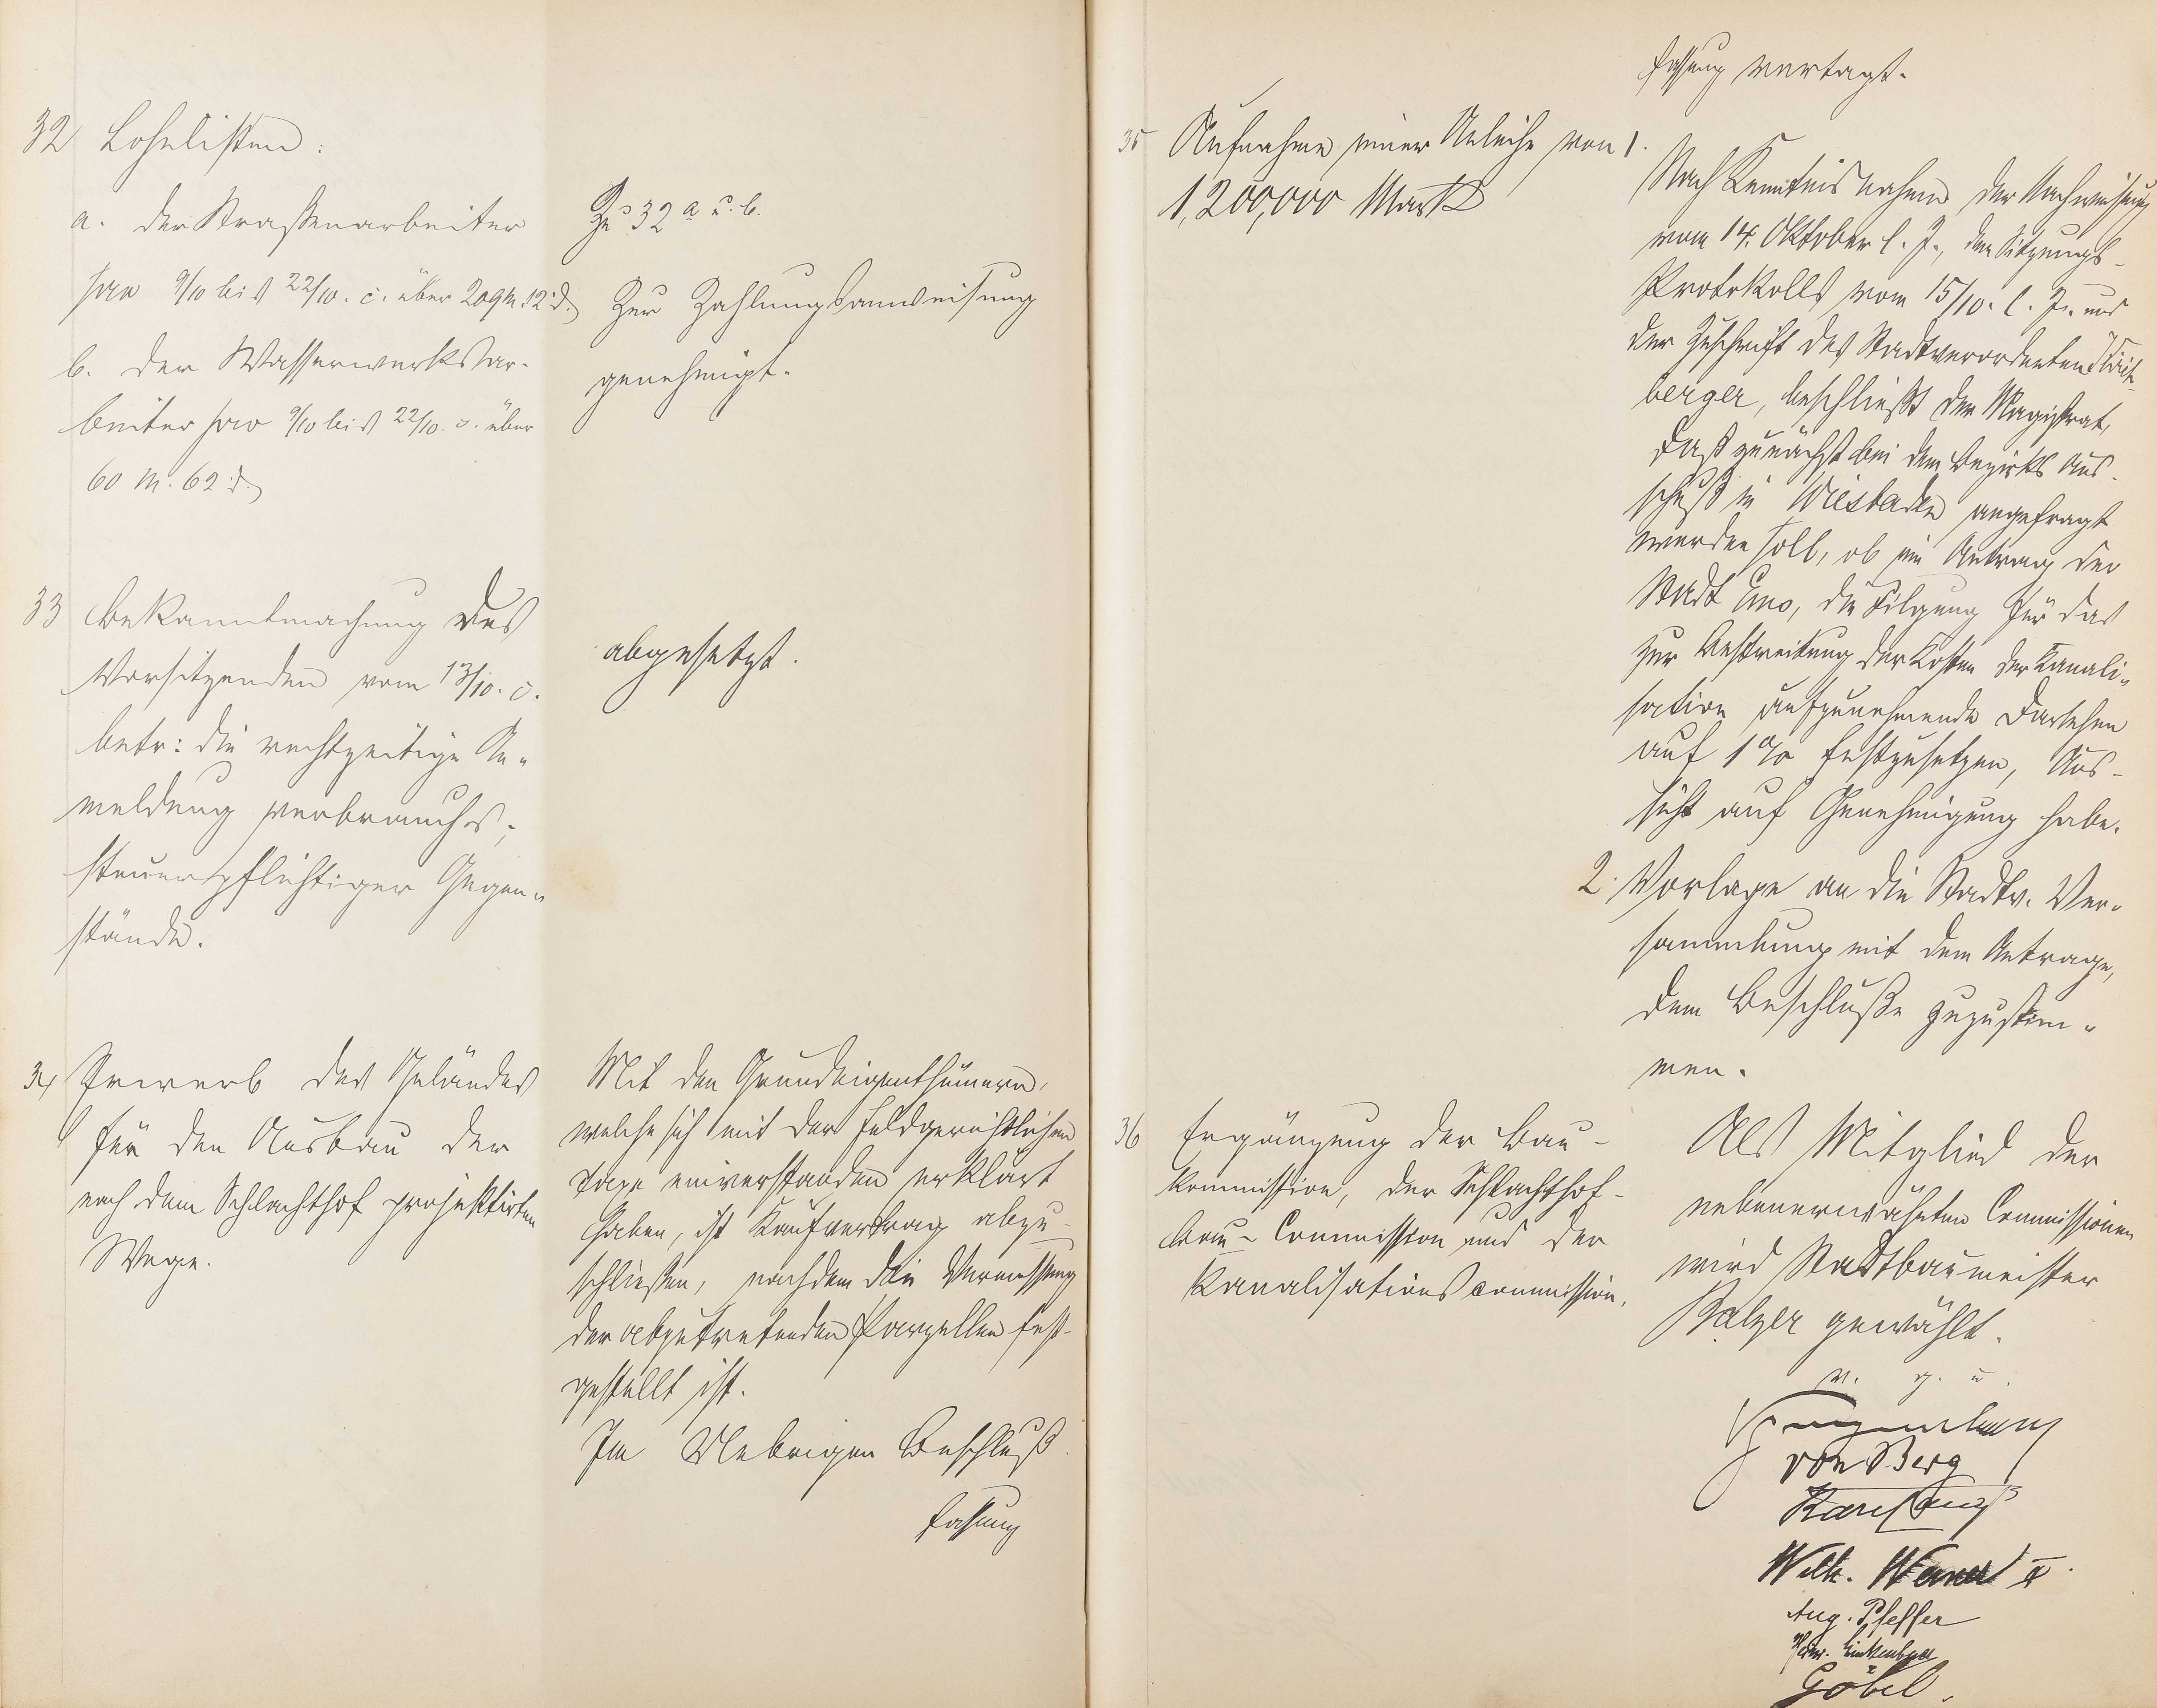 32 Lohnlisten:
a. der Straßenarbeiter
pro 9/10 bis 22/10. c. über 209 M. 12 d.
b. der Wasserwerksar-
beiter pro 9/10 bis 22/10. c. über
60 M. 62 d.
Zu 32 a u. b.
Zur Zahlungsanweisung
genehmigt.
33 Bekanntmachung des
Vorsitzenden vom 13/10. c.
betr: die rechtzeitige An-
meldung verbrauchs-
steuerpflichtiger Gegen-
stände.
abgesetzt.
34 Erwerb des Geländes
für den Ausbau der
nach dem Schlachthof projektirten
Wege.
Mit den Grundeigenthümern,
welche sich mit der feldgerichtlichen
Taxe einverstanden erklärt
haben, ist Kaufvertrag abzu-
schließen, nachdem die Vermessung
der abzutretenden Parzellen fest-
gestellt ist.
Im Uebrigen Beschluß
fassung
fassung vertagt.
35 Aufnahme einer Anleihe von
1,200,000 Mark
1.
Nach Kenntnisnahme der Nachweisung
vom 14. Oktober l. J., des Sitzungs-
Protokolls vom 15/10. l. J. und
der Zuschrift des Stadtverordneten
berger, beschließt der Magistrat,
daß zunächst bei dem Bezirks Aus-
schuß in Wiesbaden angefragt
werden soll, ob ein Antrag der
Stadt Ems, die Tilgung für das
zur Bestreitung der Kosten der Kanali-
sation aufzunehmende Darlehen
auf 1 % festzusetzen, Aus-
sicht auf Genehmigung habe.
2. Vorlage an die Stadtv. Ver-
sammlung mit dem Antrage,
dem Beschluße zuzustim-
men.
36 Ergänzung der Bau-
kommission, der Schlachthof-
bau-Commission und der
Kanalisationscommission.
Als Mitglied der
nebenerwähnten Commissionen
wird Stadtbaumeister
Balzer gewählt.
v. g. u.
von Berg
Wilh. II.
Aug. Pfeffer
Göbel.